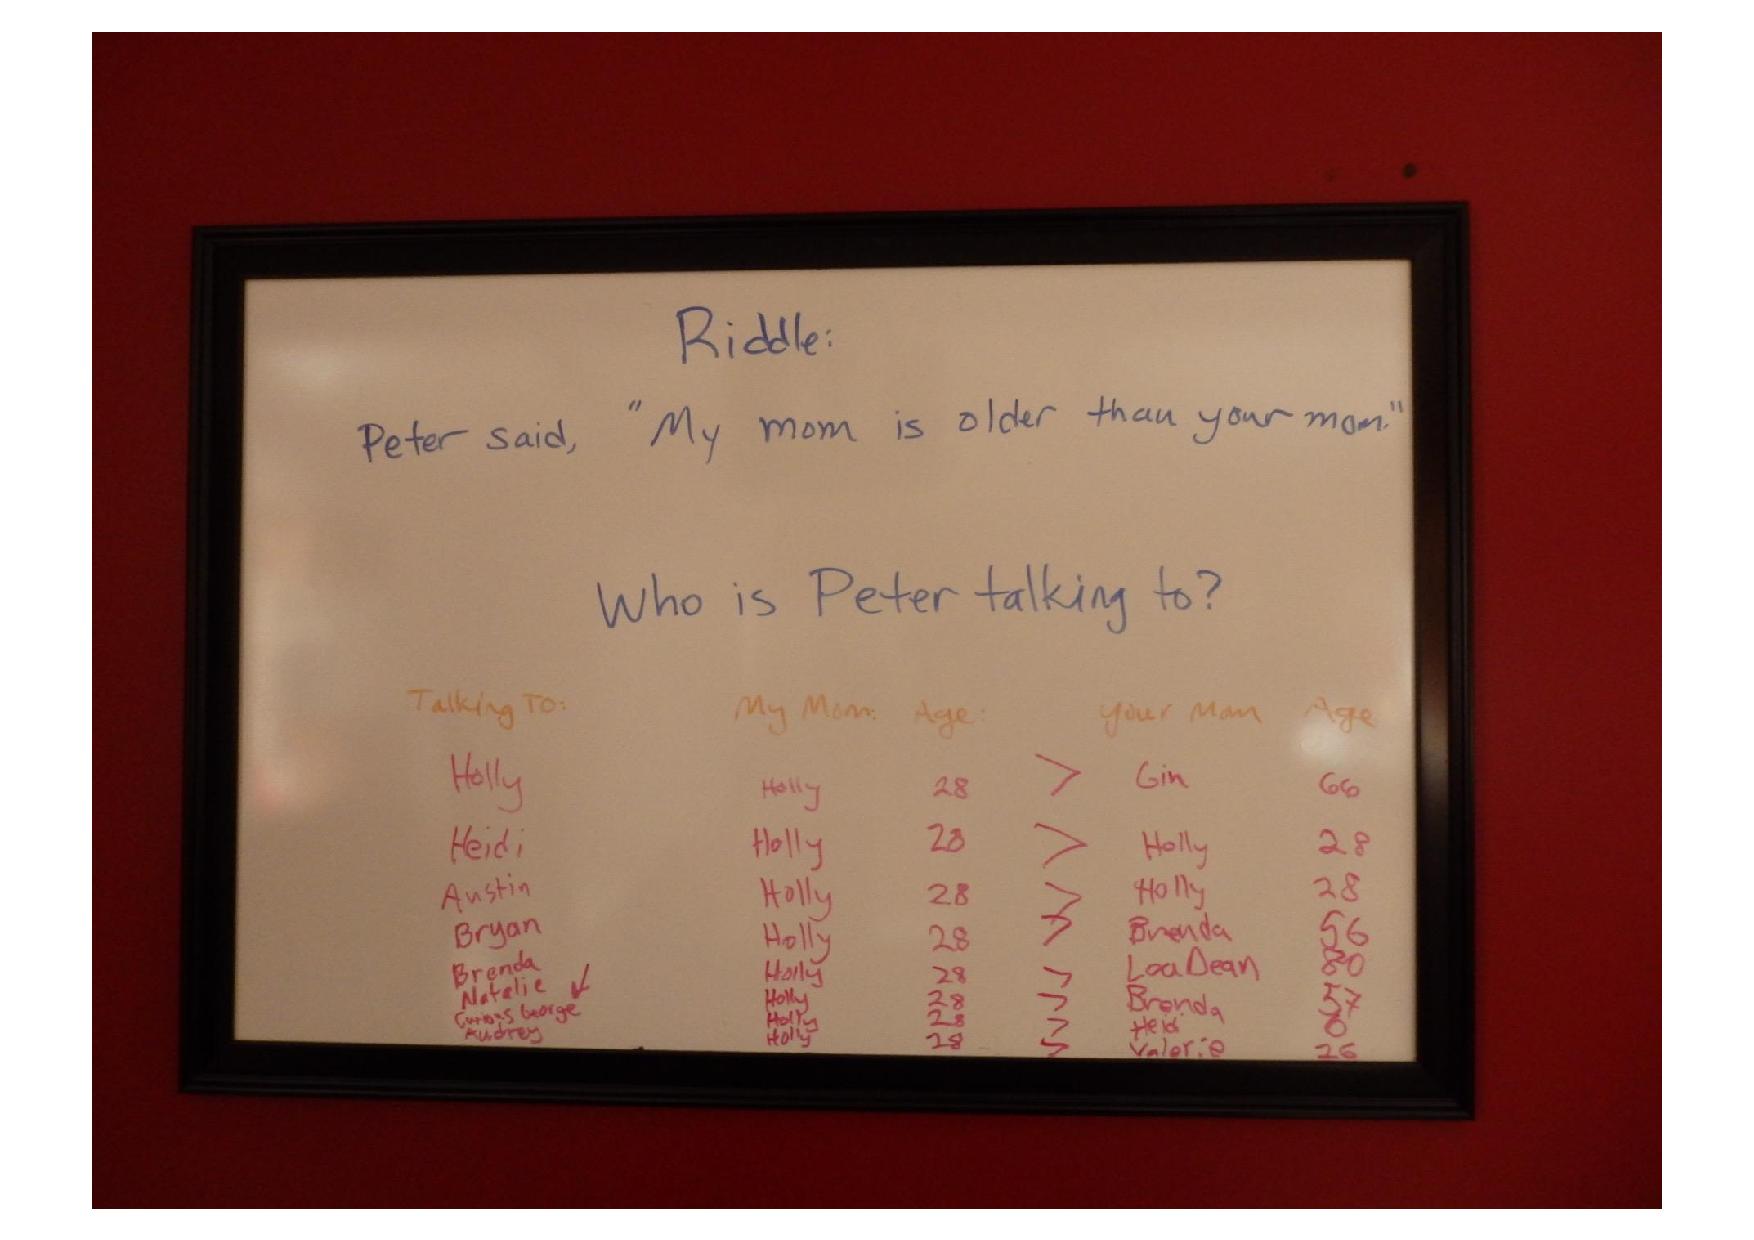 Riddle:
Peter said, "My mom is older than your mom."
Who is Peter talking to?
Talking To: My Mom: Age: Your Mom Age
Holly Holly 28 > Gin 66
Heidi Holly 28 > Holly 28
Austin Holly 28 > Holly 28
Bryan Holly 28 > Brenda 56
Brenda Holly 28 > LoaDean 80
Natalie Holly 28 > Brenda 57
Curious George Holly 28 > Heidi 6
Audrey Holly 28 > Valorie 26